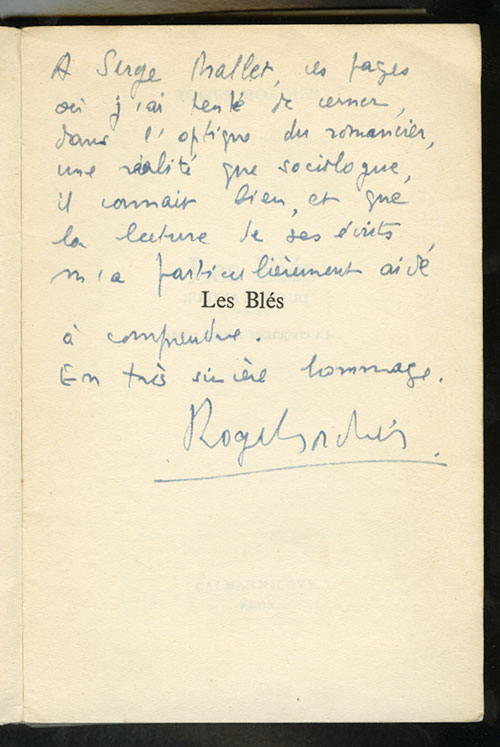 A Serge Mallet, ces pages
où j'ai tenté de cerner,
dans l'optique du romancier,
une réalité que sociologue,
il connait bien, et que
la lecture de ses écrits
m'a particulièrement aidé
Les Blés
à comprendre.
En très sincère hommage.
Roger Bordier